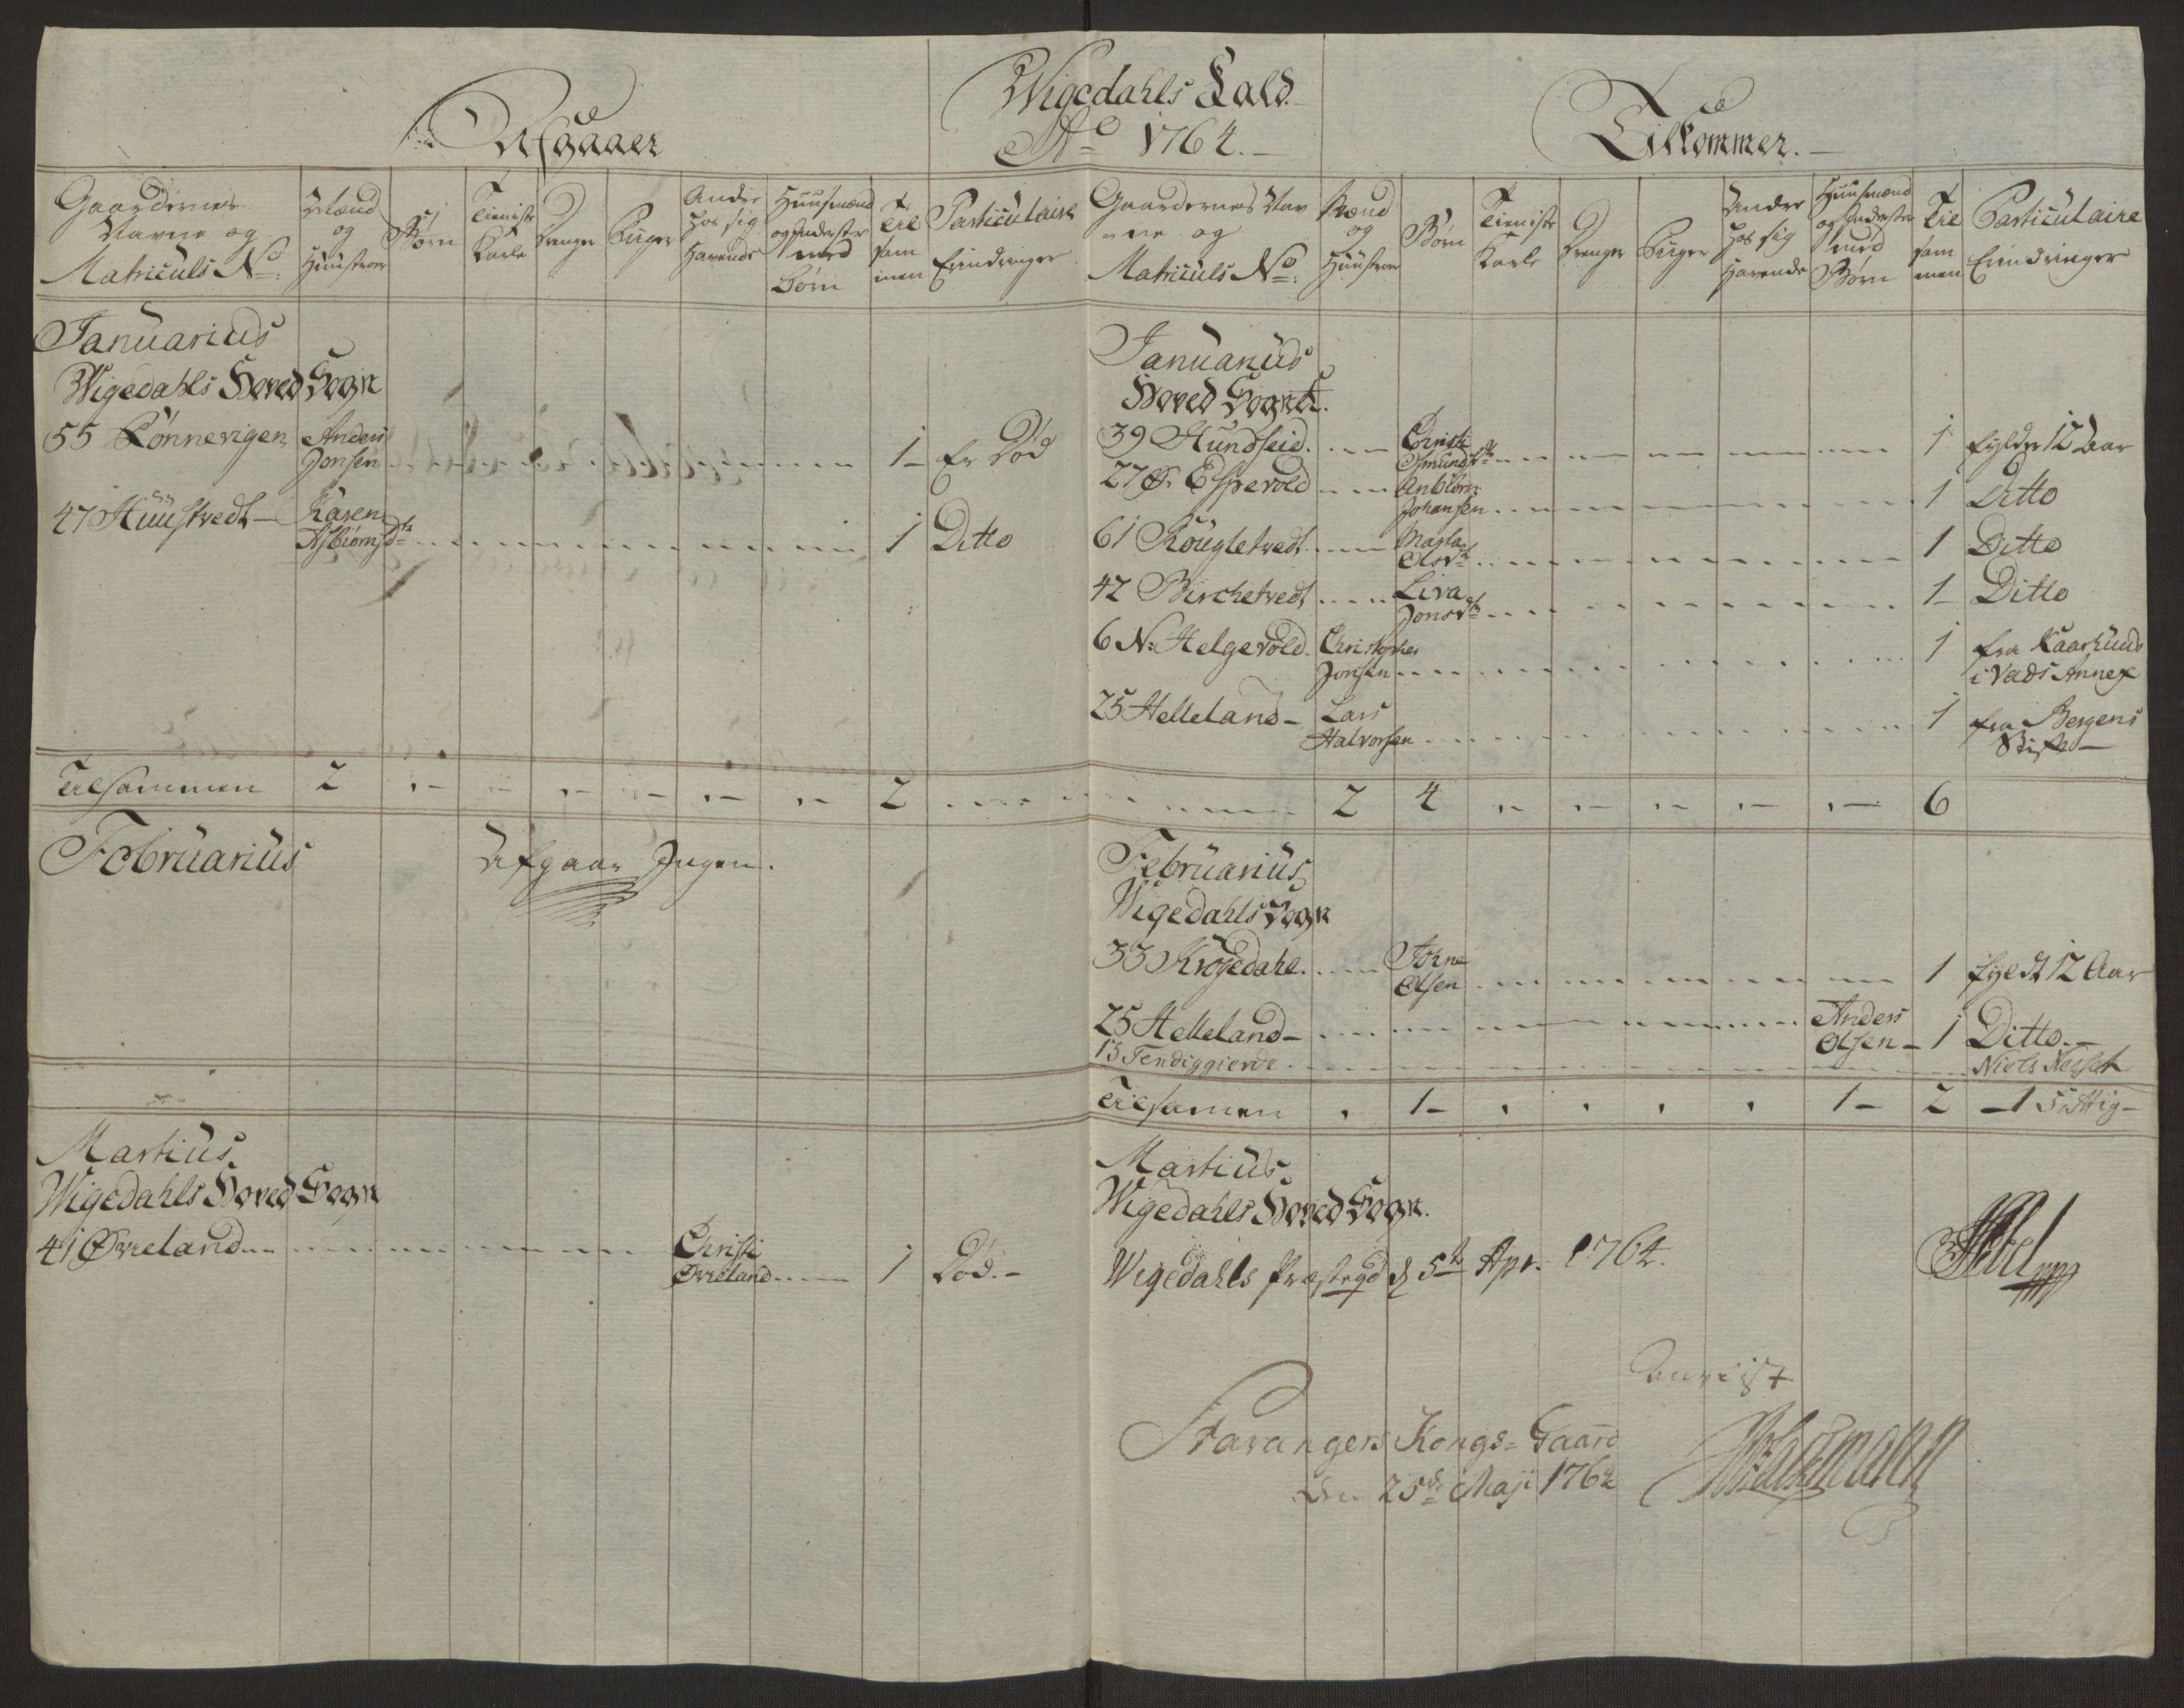 Wigedahls Kald
Ao 1764.
Afgaaer
Gaardernes
Navne og
Matriculs No:
Mænd
og
Huustroer
Børn
Tieniste
Karle
Drenge
Piiger
Andre
hos sig
Havende
Huusmænd
og Inderster
med
Børn
Til
sam
men
Particulaire
Erindringer
Januarius
Wigedahls Hoved Sogn
55 Rønnevigen Anders
Jonsen 1 Er Død
47 Huustvedt Karen
Asbiørnsdtr 1 Ditto
Tilsammen 2 2
Februarius Afgaar Ingen.
Martius
Wigedahls Hoved Sogn
41 Øvreland Christi
Øvreland 1 Død.
Tilkommer.
Gaardernes Nav
ne og
Matriculs No:
Mænd
og
Huustroer
Børn
Tieniste
Karle
Drenge
Piiger
Andre
hos sig
Havende
Huusmænd
og Inderster
med
Børn
Til
sam
men
Particulaire
Erindringer
Januarius
Hoved Sognet.
39 Hundseid. Christi
Osmundsdtr 1 fylder 12 Aar
27 Ø. Espevold Anbiørn
Johansen 1 Ditto
61 Kougletvedt Marta
Olsdtr 1 Ditto
42 Birchetvedt Liva
Jonsdtr 1 Ditto
6 N: Helgevold Christopher
Jonsen 1 fra Kaarhuus
i Vads Annex
25 Helleland Lars
Halvorsen 1 fra Bergens
Stift
2 4 6
Februarius
Wigedahls Sogn
33 Krogedahl Johne
Olsen 1 fyldt 12 Aar
25 Helleland Anders
Olsen 1 Ditto.
15 Tendiggierde Niels
Tilsamen 1 1 2 1
Martius
Wigedahls Hoved Sogn.
Wigedahls Præstegd d 5te Apr. 1764.
Abel
Revisit
Stavangers Kongs-Gaard
den 25de Maji 1764